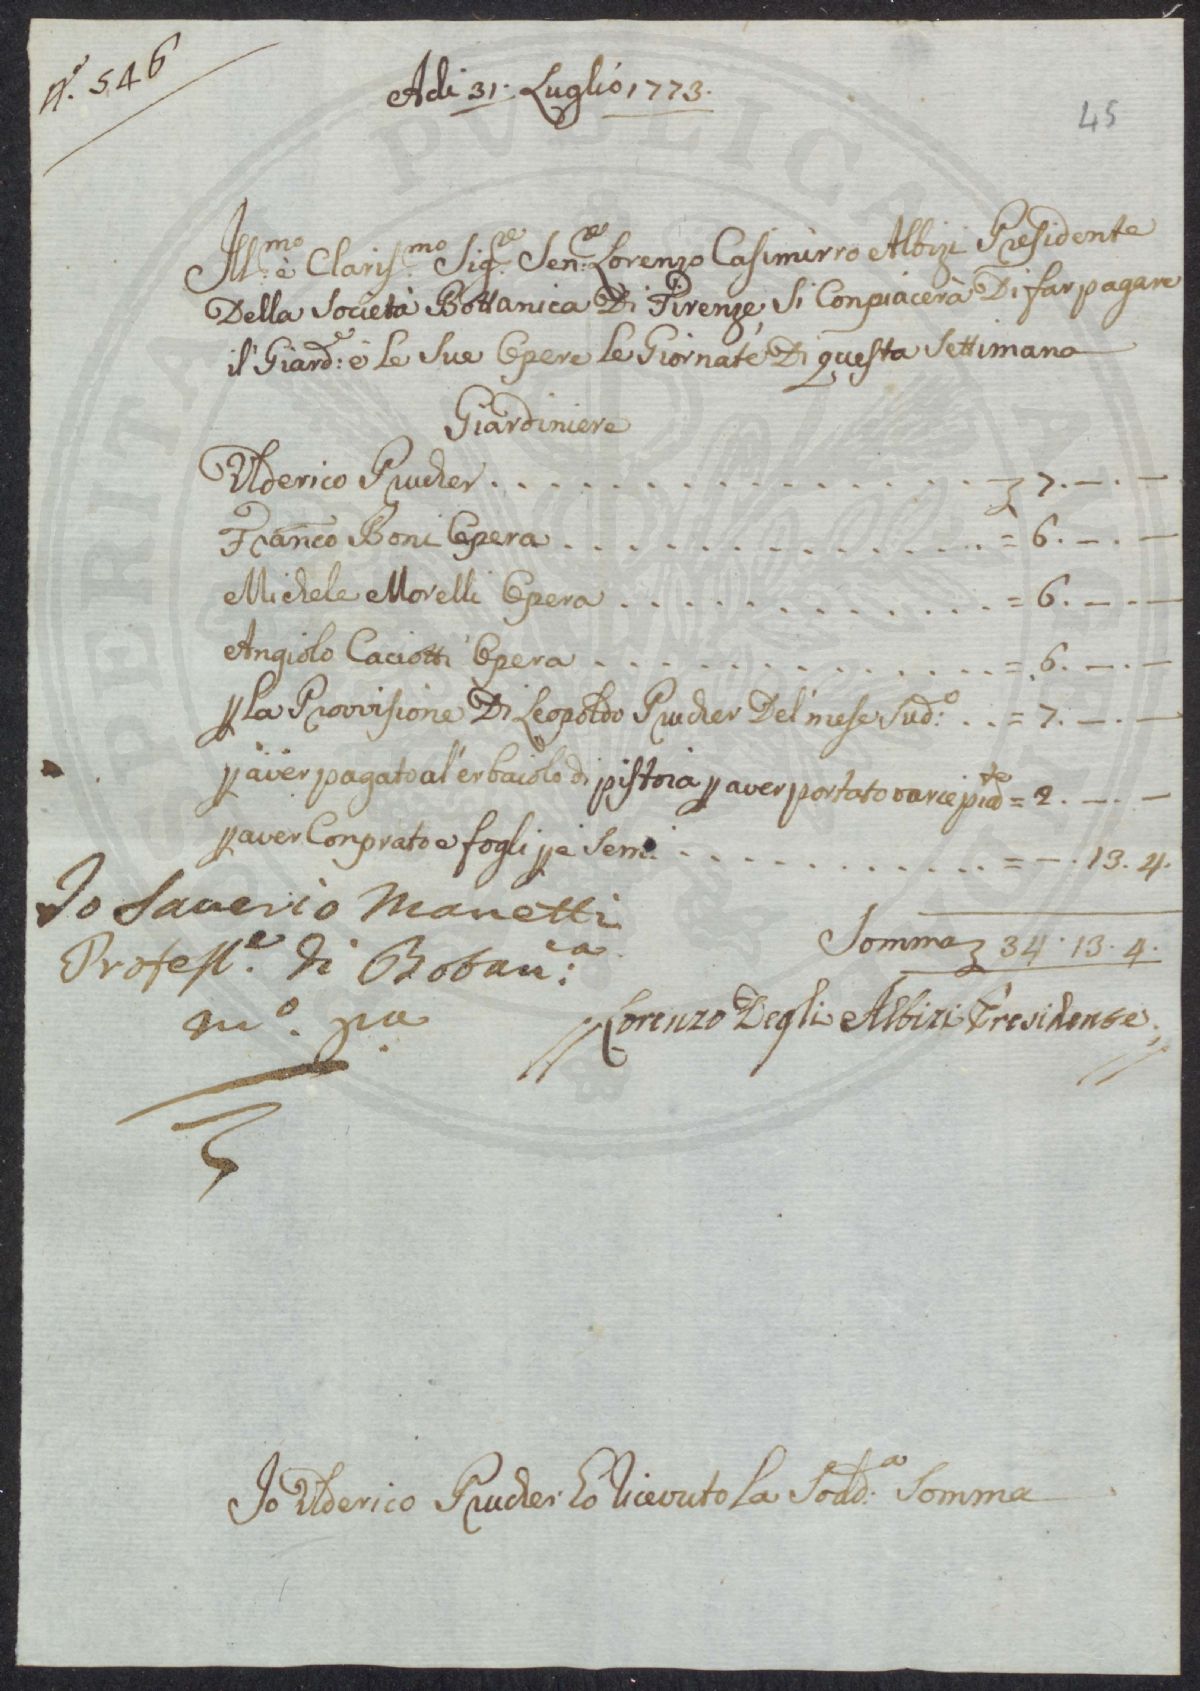 N.º 546
Adi 31. Luglio 1773.
45
Ill.mo è Claris.mo Sig.re Sen.re Lorenzo Casimirro Albizi Presidente
Della Società Bottanica Di Firenze Si Conpiacerà Di far pagare
il Giard.e è Le Sue Opere Le Giornate Di questa Settimana
Giardiniere
Ulderico Prucher . . . . . . . . . . . . . . . 7. — . —
Franco Boni Opera . . . . . . . . . . . . . = 6. — . —
Michele Morelli Opera . . . . . . . . . . . . = 6. — . —
Angiolo Caciotti Opera . . . . . . . . . . . . = 6. — . —
p La Provvisione Di Leopoldo Prucher Del mese Sud.o . . = 7. — . —
p aver pagato al erbaiolo di pistoia p aver portato varie pia.te = 2. — . —
p aver Conprato e fogli p e Semi . . . . . . . . . . = — . 13. 4.
Somma 34. 13. 4.
Io Saverio Manetti
Profess.e di Botan.ca
m.o pa
Lorenzo Degli Albizi Presidente
Io Ulderico Prucher ho Ricevuto La Sodd.a Somma